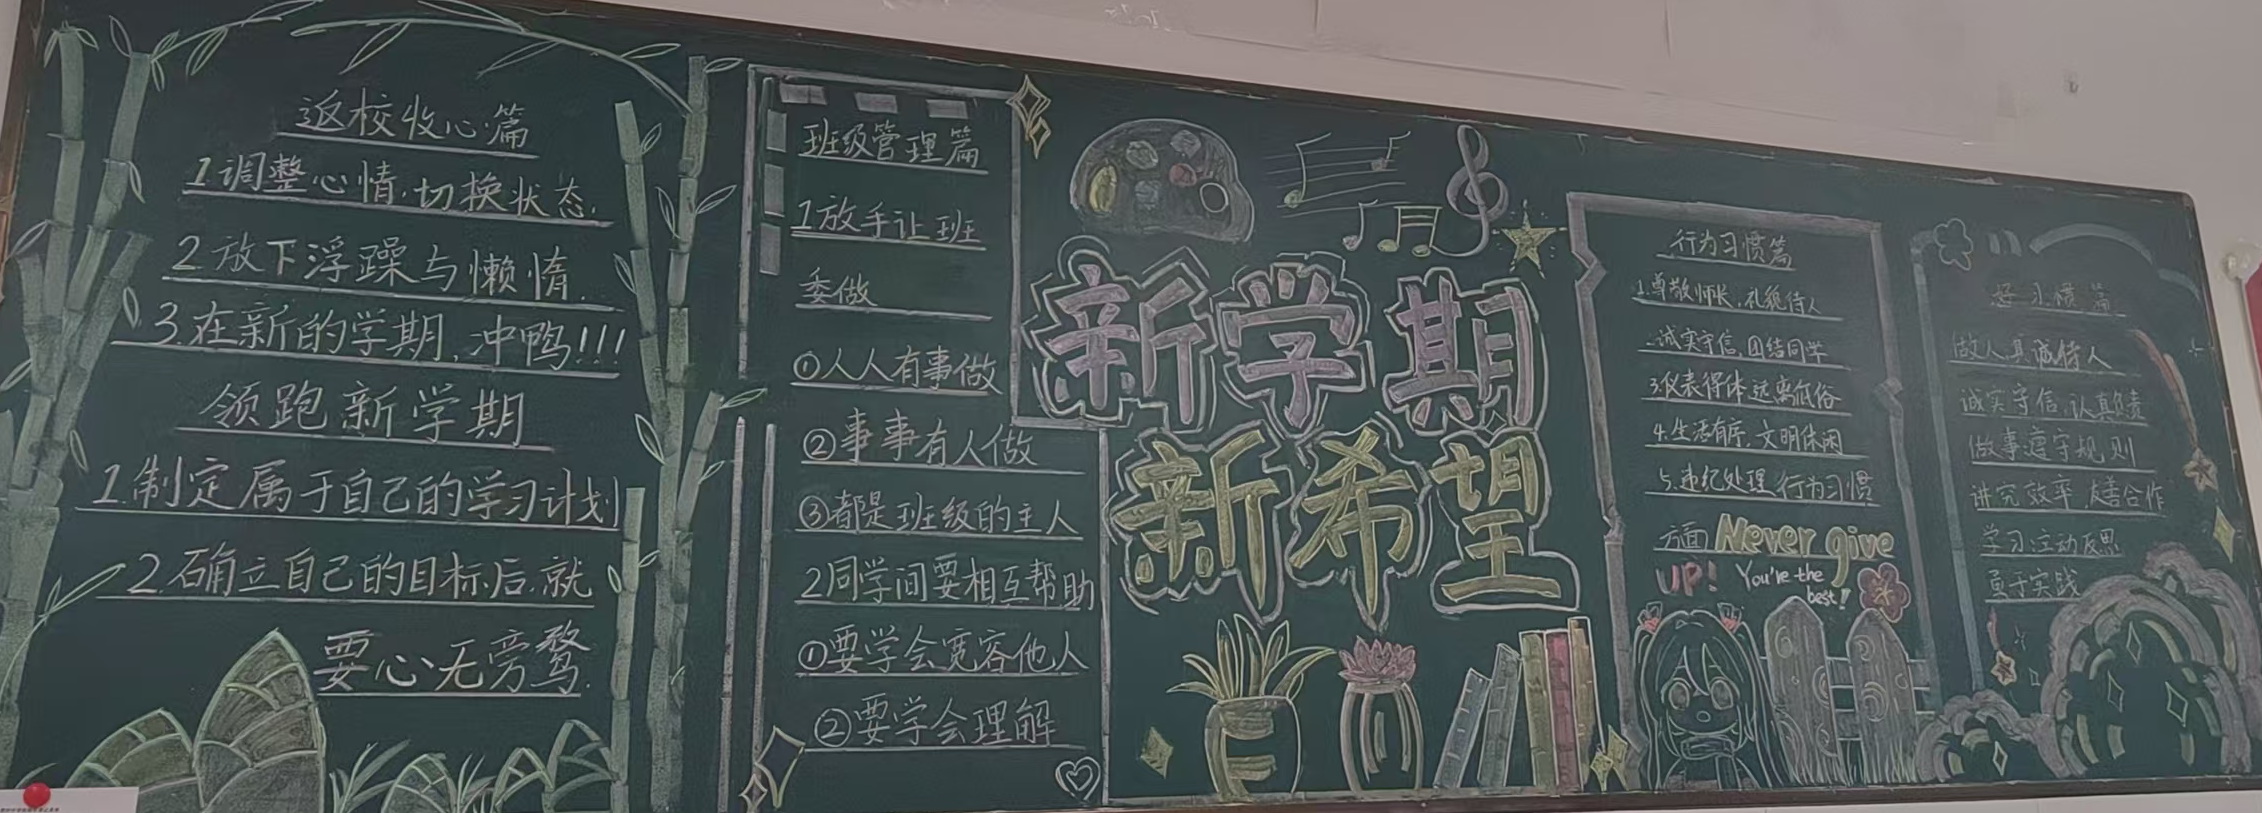 返校收心篇
1调整心情,切换状态.
2放下浮躁与懒惰.
3.在新的学期,冲鸭!!!
领跑新学期
1.制定属于自己的学习计划
2.确立自己的目标后.就
要心无旁骛.
班级管理篇
1放手让班
委做
①人人有事做
②事事有人做
③都是班级的主人
2同学间要相互帮助
①要学会宽容他人
②要学会理解
新学期
新希望
行为习惯篇
1.尊敬师长,礼貌待人
诚实守信,团结同学
3仪表得体远离低俗
4.生活有序,文明休闲
5.违纪处理行为习惯
方面 Never give
UP! You're the
best!
好习惯篇
做人真诚待人
诚实守信,认真负责
做事遵守规则
讲究效率,友善合作
学习主动反思
勇于实践